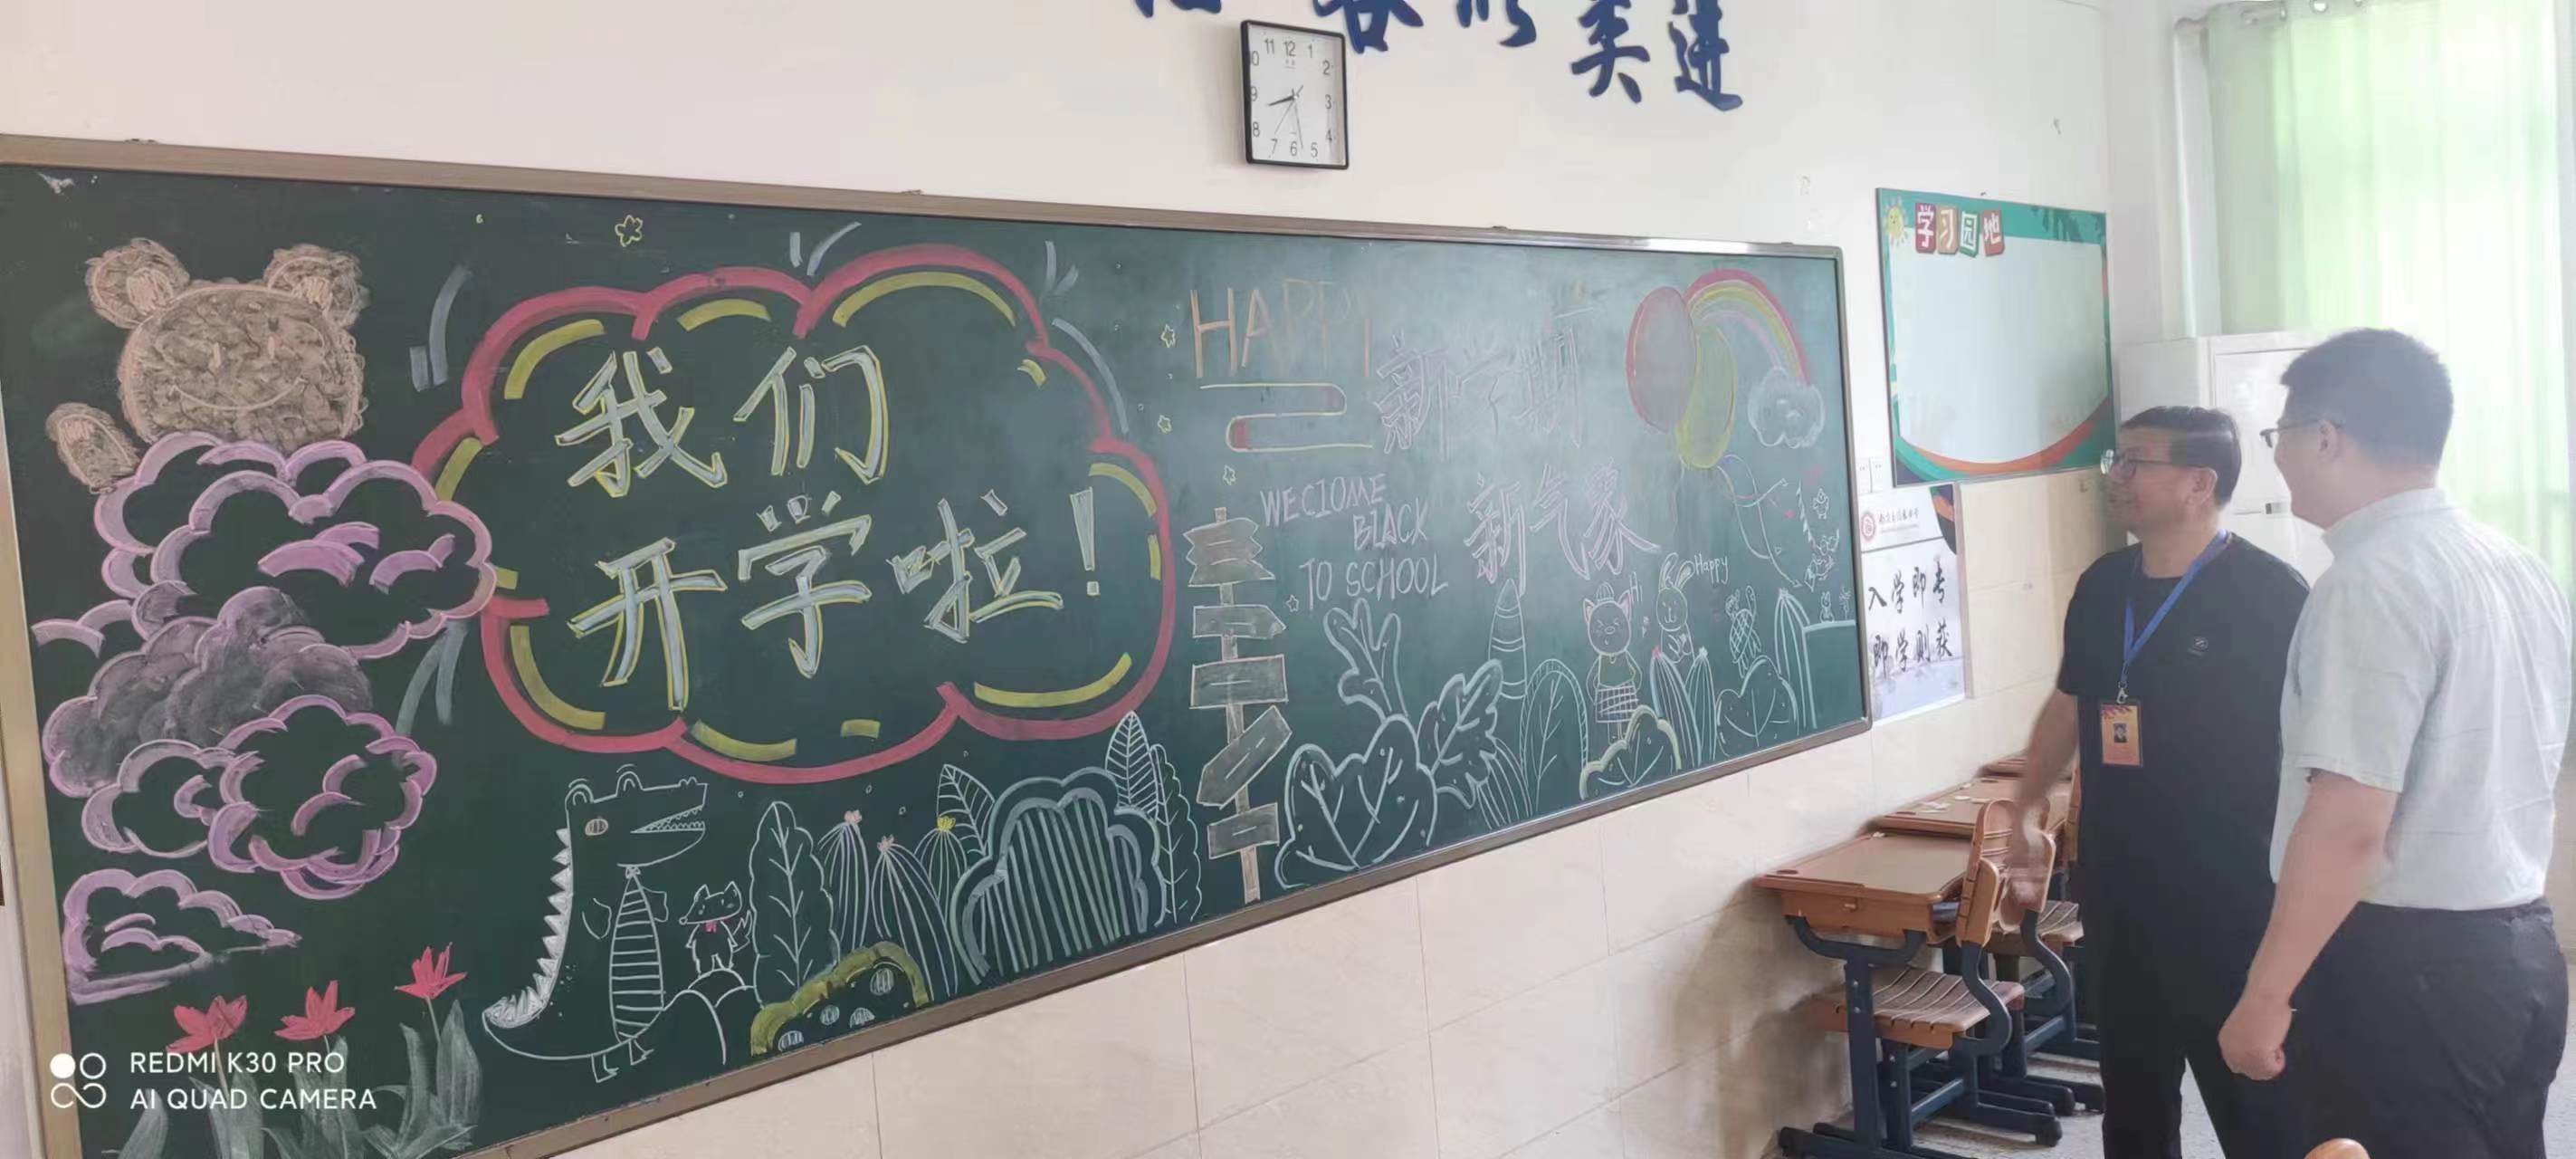 类进
11 12 1
2
9 3
8 4
7 6 5
学习园地
HAPPY
我们
新学期
开学啦!
WEClOME
BlACK
TO SCHOOL
新气象
Hi
Happy
入学即考
即学则获
REDMI K30 PRO
AI QUAD CAMERA